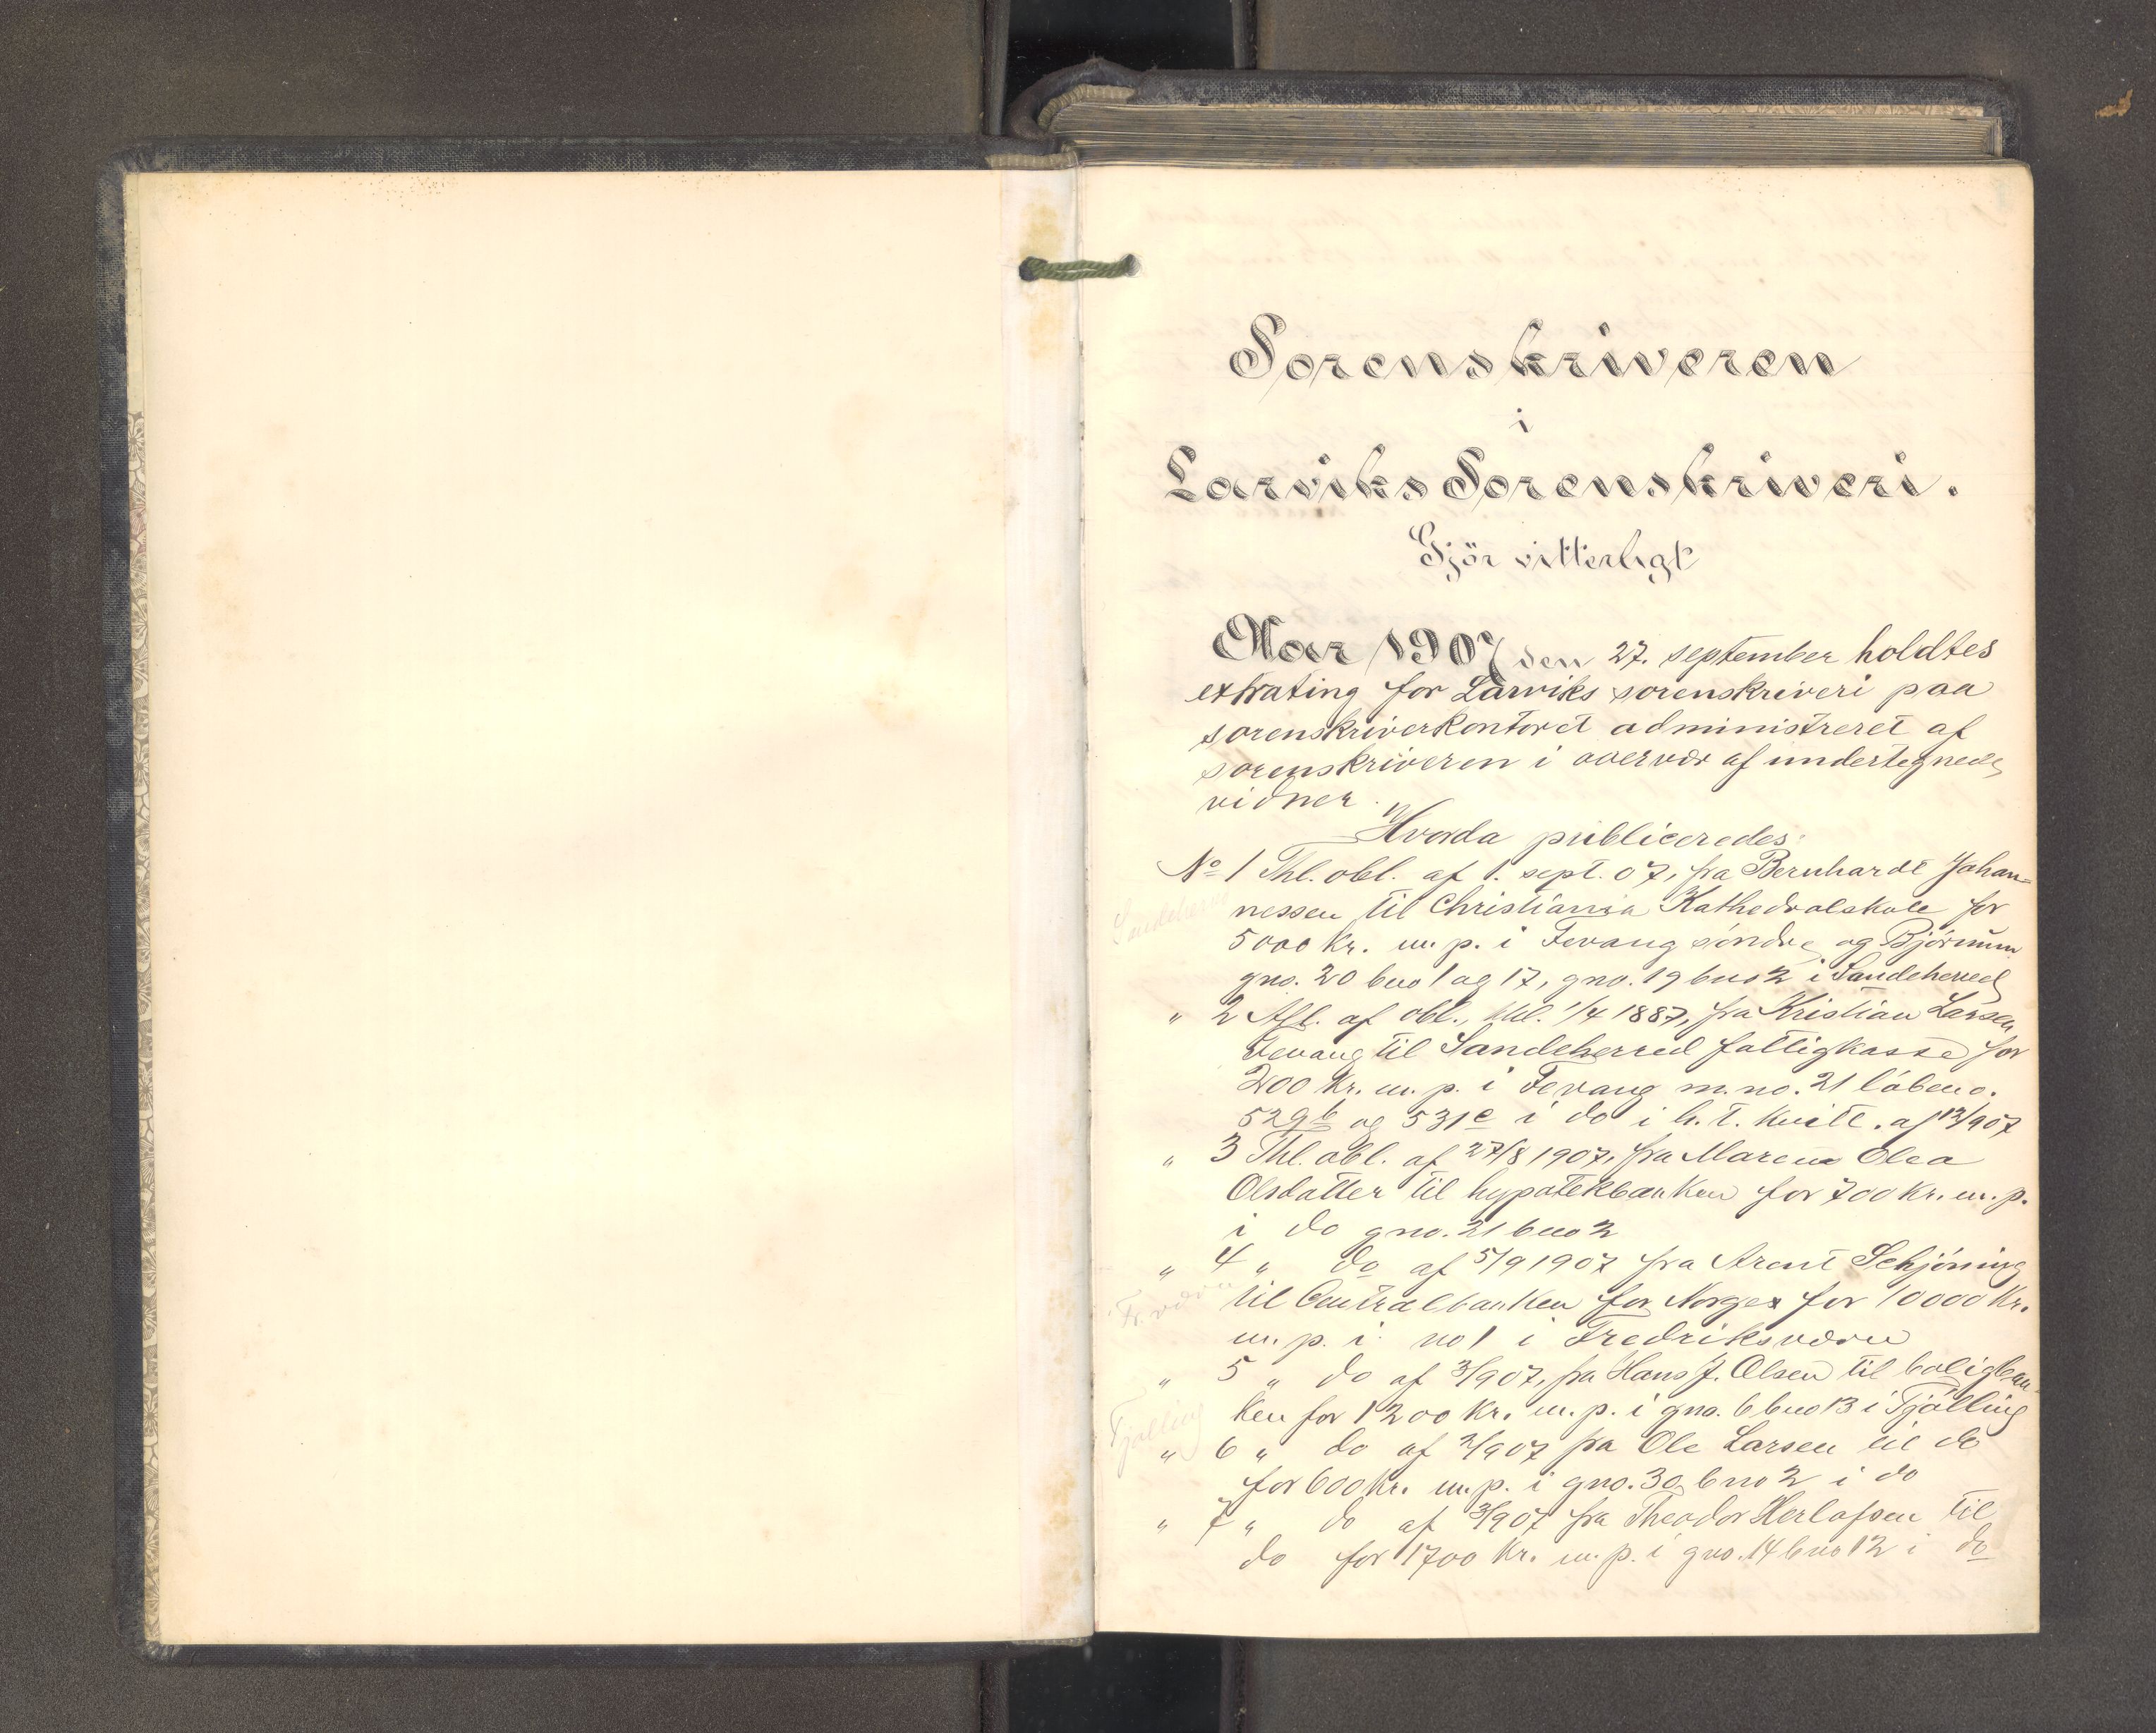 Sorenskriveren
i
Larviks Sorenskriveri.
Gjör vitterligt
Aar 1907 den 27. september holdtes
extrating for Larviks sorenskriveri paa
sorenskriverkontoret administreret af
sorenskriveren i overvær af undertegnede
vidner.
Hvorda publiceredes:
No 1 Thl. obl. af 1. sept. 07, fra Bernhardt Johan=
Sandeherred
nessen til Christiania Kathedralskole for
5000 Kr. m. p. i Fevang söndre og Björnum
gno. 20 bno 1 og 17, gno. 19 bno 2 i Sandeherred
" 2 Afl. af obl., thl. 1/4 1887, fra Kristian Larsen
Fevang til Sandeherred fattigkasse for
200 Kr. m. p. i Fevang m. no. 21 löbeno.
529b og 531c i do i h. t. kvitt. af 13/907
" 3 Thl. obl. af 27/8 1907, fra Maren Olea
Olsdatter til hypotekbanken for 700 Kr. m. p.
i do gno. 21 bno 2
" 4 " do af 5/9 1907 fra Arent Schjöning
Fr.værn
til Centralbanken for Norge for 10000 Kr.
m. p. i no 1 i Fredriksværn
" 5 " do af 3/907, fra Hans J. Olsen til boligban-
Tjölling
ken for 1200 Kr. m. p. i gno. 6 bno 13 i Tjölling
" 6 " do af 2/907 fra Ole Larsen til do
for 600 Kr. m. p. i gno. 30 bno 2 i do
" 7 " do af 3/907 fra Theodor Herlofsen til
do for 1700 Kr. m. p. i gno. 14 bno 12 i do